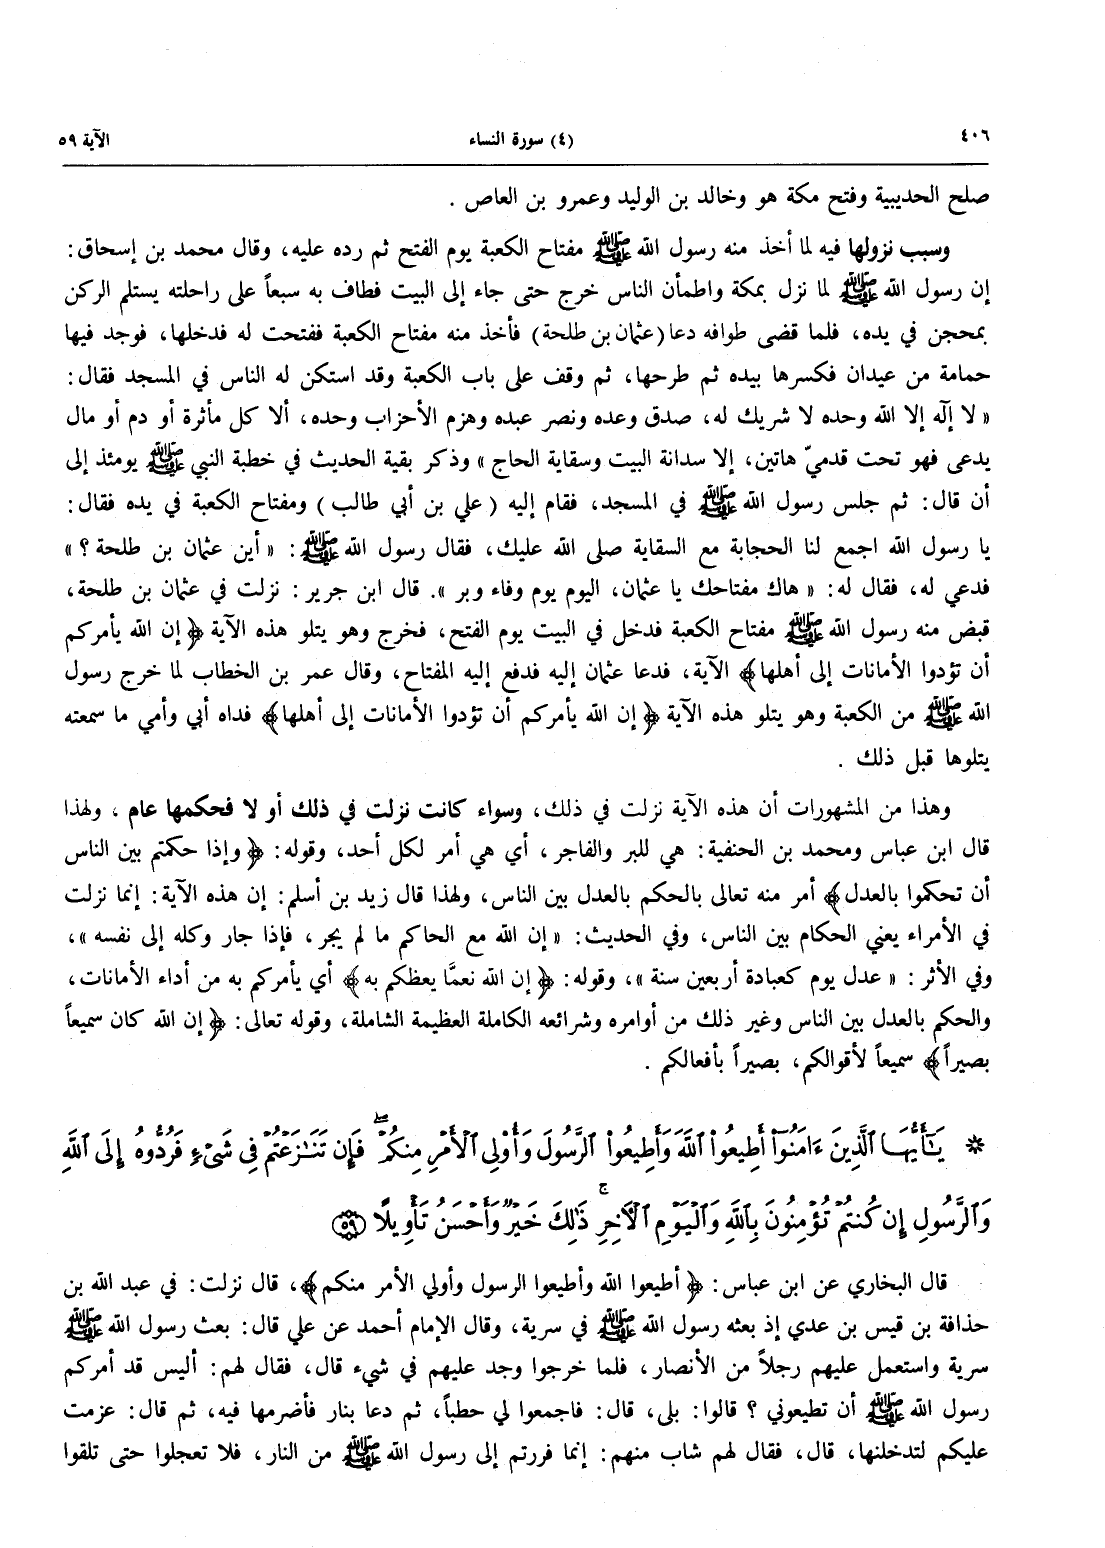 ٤٠٦ (٤) سورة النساء الآية ٥٩
صلح الحديبية وفتح مكة هو وخالد بن الوليد وعمرو بن العاص .
وسبب نزولها فيه لما أخذ منه رسول الله ﷺ مفتاح الكعبة يوم الفتح ثم رده عليه، وقال محمد بن إسحاق:
إن رسول الله ﷺ لما نزل بمكة واطمأن الناس خرج حتى جاء إلى البيت فطاف به سبعاً على راحلته يستلم الركن
بمحجن في يده، فلما قضى طوافه دعا (عثمان بن طلحة) فأخذ منه مفتاح الكعبة ففتحت له فدخلها، فوجد فيها
حمامة من عيدان فكسرها بيده ثم طرحها، ثم وقف على باب الكعبة وقد استكن له الناس في المسجد فقال:
« لا إلٓه إلا الله وحده لا شريك له، صدق وعده ونصر عبده وهزم الأحزاب وحده، ألا كل مأثرة أو دم أو مال
يدعى فهو تحت قدميّ هاتين، إلا سدانة البيت وسقاية الحاج » وذكر بقية الحديث في خطبة النبي ﷺ يومئذ إلى
أن قال: ثم جلس رسول الله ﷺ في المسجد، فقام إليه ( علي بن أبي طالب ) ومفتاح الكعبة في يده فقال:
يا رسول الله اجمع لنا الحجابة مع السقاية صلى الله عليك، فقال رسول الله ﷺ: « أين عثمان بن طلحة ؟ »
فدعي له، فقال له: « هاك مفتاحك يا عثمان، اليوم يوم وفاء وبر ». قال ابن جرير: نزلت في عثمان بن طلحة،
قبض منه رسول الله ﷺ مفتاح الكعبة فدخل في البيت يوم الفتح، فخرج وهو يتلو هذه الآية ﴿ إن الله يأمركم
أن تؤدوا الأمانات إلى أهلها﴾ الآية، فدعا عثمان إليه فدفع إليه المفتاح، وقال عمر بن الخطاب لما خرج رسول
الله ﷺ من الكعبة وهو يتلو هذه الآية ﴿ إن الله يأمركم أن تؤدوا الأمانات إلى أهلها﴾ فداه أبي وأمي ما سمعته
يتلوها قبل ذلك .
وهذا من المشهورات أن هذه الآية نزلت في ذلك، وسواء كانت نزلت في ذلك أو لا فحكمها عام ، ولهذا
قال ابن عباس ومحمد بن الحنفية: هي للبر والفاجر، أي هي أمر لكل أحد، وقوله: ﴿ وإذا حكمتم بين الناس
أن تحكموا بالعدل ﴾ أمر منه تعالى بالحكم بالعدل بين الناس، ولهذا قال زيد بن أسلم: إن هذه الآية: إنما نزلت
في الأمراء يعني الحكام بين الناس، وفي الحديث: « إن الله مع الحاكم ما لم يجر، فإذا جار وكله إلى نفسه »،
وفي الأثر : « عدل يوم كعبادة أربعين سنة »، وقوله: ﴿ إن الله نعمَّا يعظكم به﴾ أي يأمركم به من أداء الأمانات،
والحكم بالعدل بين الناس وغير ذلك من أوامره وشرائعه الكاملة العظيمة الشاملة، وقوله تعالى: ﴿ إن الله كان سميعاً
بصيراً﴾ سميعاً لأقوالكم، بصيراً بأفعالكم .
* يَٰٓأَيُّهَا ٱلَّذِينَ ءَامَنُوٓاْ أَطِيعُواْ ٱللَّهَ وَأَطِيعُواْ ٱلرَّسُولَ وَأُوْلِى ٱلْأَمْرِ مِنكُمْ ۖ فَإِن تَنَٰزَعْتُمْ فِى شَىْءٍ فَرُدُّوهُ إِلَى ٱللَّهِ
وَٱلرَّسُولِ إِن كُنتُمْ تُؤْمِنُونَ بِٱللَّهِ وَٱلْيَوْمِ ٱلْءَاخِرِ ۚ ذَٰلِكَ خَيْرٌ وَأَحْسَنُ تَأْوِيلًا ﴿٥٩﴾
قال البخاري عن ابن عباس: ﴿ أطيعوا الله وأطيعوا الرسول وأولي الأمر منكم﴾، قال نزلت: في عبد الله بن
حذافة بن قيس بن عدي إذ بعثه رسول الله ﷺ في سرية، وقال الإمام أحمد عن علي قال: بعث رسول الله ﷺ
سرية واستعمل عليهم رجلاً من الأنصار، فلما خرجوا وجد عليهم في شيء قال، فقال لهم: أليس قد أمركم
رسول الله ﷺ أن تطيعوني ؟ قالوا: بلى، قال: فاجمعوا لي حطباً، ثم دعا بنار فأضرمها فيه، ثم قال: عزمت
عليكم لتدخلنها، قال، فقال لهم شاب منهم: إنما فررتم إلى رسول الله ﷺ من النار، فلا تعجلوا حتى تلقوا